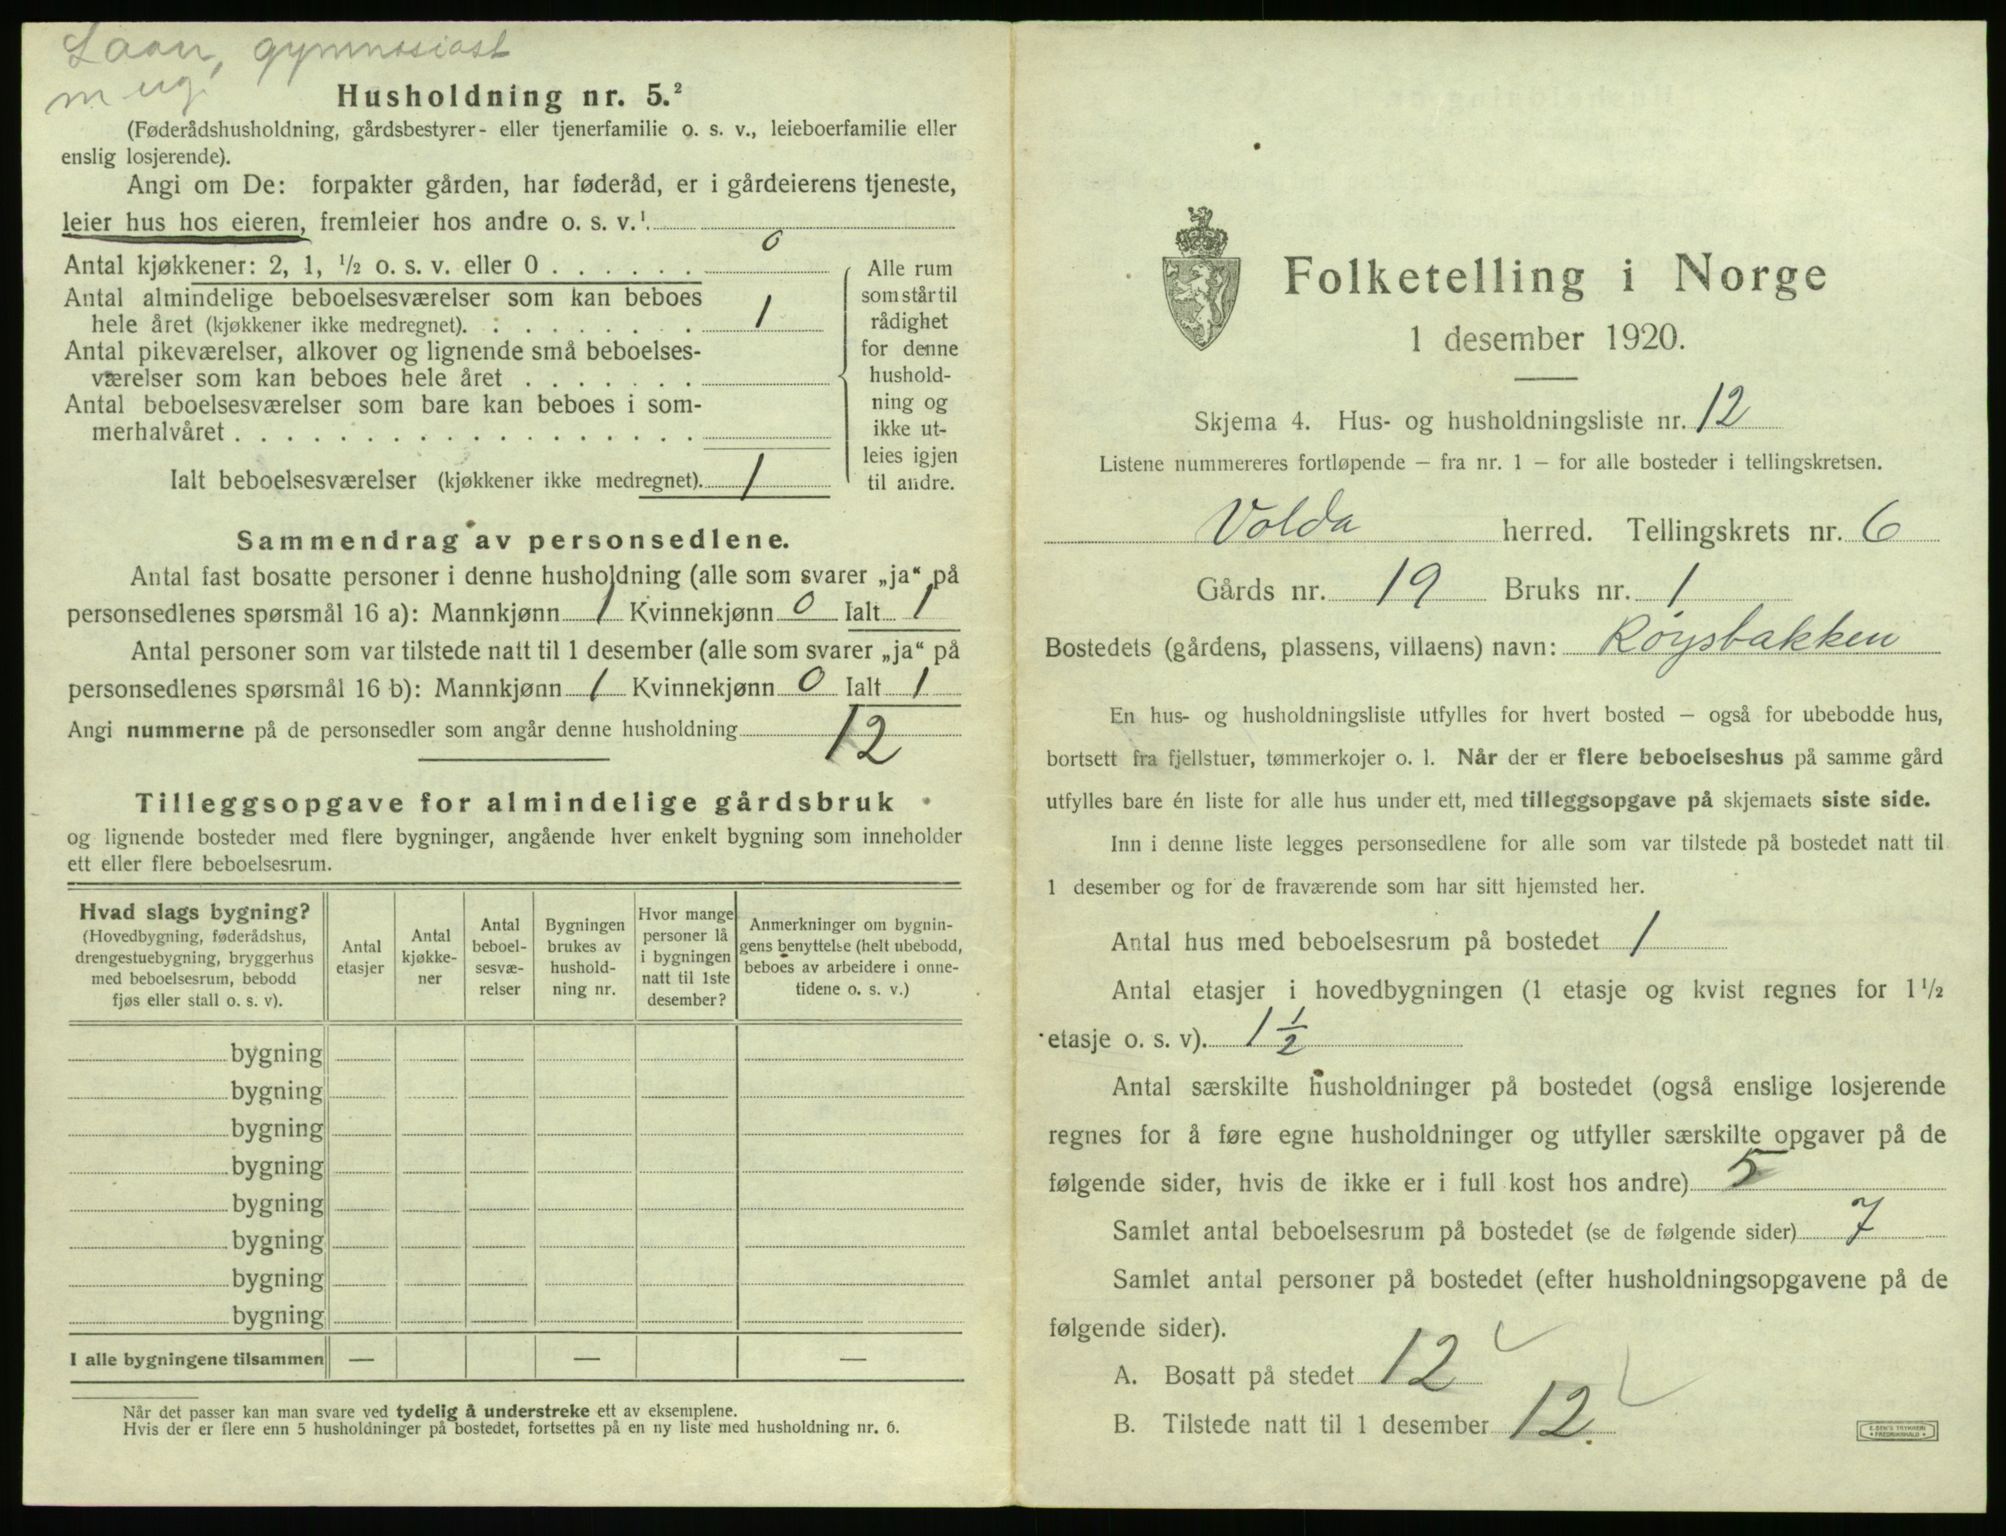 Laan, gymnasiast
m ug.
Husholdning nr. 5.²
(Føderådshusholdning, gårdsbestyrer- eller tjenerfamilie o. s. v., leieboerfamilie eller
enslig losjerende).
Angi om De: forpakter gården, har føderåd, er i gårdeierens tjeneste,
leier hus hos eieren, fremleier hos andre o. s. v.¹
Antal kjøkkener: 2, 1, ½ o. s. v. eller 0 . . . . . . 0
Antal almindelige beboelsesværelser som kan beboes
hele året (kjøkkener ikke medregnet). . . . . . . . . 1
Antal pikeværelser, alkover og lignende små beboelses-
værelser som kan beboes hele året . . . . . . .
Antal beboelsesværelser som bare kan beboes i som-
merhalvåret . . . . . . . . . . . . . . . . . .
Ialt beboelsesværelser (kjøkkener ikke medregnet). 1
Alle rum
som står til
rådighet
for denne
hushold-
ning og
ikke ut-
leies igjen
til andre.
Sammendrag av personsedlene.
Antal fast bosatte personer i denne husholdning (alle som svarer „ja“ på
personsedlenes spørsmål 16 a): Mannkjønn 1 Kvinnekjønn 0 Ialt 1
Antal personer som var tilstede natt til 1 desember (alle som svarer „ja“ på
personsedlenes spørsmål 16 b): Mannkjønn 1 Kvinnekjønn 0 Ialt 1
Angi nummerne på de personsedler som angår denne husholdning 12
Tilleggsopgave for almindelige gårdsbruk
og lignende bosteder med flere bygninger, angående hver enkelt bygning som inneholder
ett eller flere beboelsesrum.
Hvad slags bygning?
(Hovedbygning, føderådshus,
drengestuebygning, bryggerhus
med beboelsesrum, bebodd
fjøs eller stall o. s. v).
Antal
etasjer
Antal
kjøkke-
ner
Antal
beboel-
sesvæ-
relser
Bygningen
brukes av
hushold-
ning nr.
Hvor mange
personer lå
i bygningen
natt til 1ste
desember?
Anmerkninger om bygnin-
gens benyttelse (helt ubebodd,
beboes av arbeidere i onne-
tidene o. s. v.)
bygning
bygning
bygning
bygning
bygning
bygning
bygning
bygning
I alle bygningene tilsammen — — —
Når det passer kan man svare ved tydelig å understreke ett av eksemplene.
Hvis der er flere enn 5 husholdninger på bostedet, fortsettes på en ny liste med husholdning nr. 6.
Folketelling i Norge
1 desember 1920.
Skjema 4. Hus- og husholdningsliste nr. 12
Listene nummereres fortløpende — fra nr. 1 — for alle bosteder i tellingskretsen.
Volda herred. Tellingskrets nr. 6
Gårds nr. 19 Bruks nr. 1
Bostedets (gårdens, plassens, villaens) navn: Røysbakken
En hus- og husholdningsliste utfylles for hvert bosted — også for ubebodde hus,
bortsett fra fjellstuer, tømmerkojer o. l. Når der er flere beboelseshus på samme gård
utfylles bare én liste for alle hus under ett, med tilleggsopgave på skjemaets siste side.
Inn i denne liste legges personsedlene for alle som var tilstede på bostedet natt til
1 desember og for de fraværende som har sitt hjemsted her.
Antal hus med beboelsesrum på bostedet 1
Antal etasjer i hovedbygningen (1 etasje og kvist regnes for 1½
etasje o. s. v). 1½
Antal særskilte husholdninger på bostedet (også enslige losjerende
regnes for å føre egne husholdninger og utfyller særskilte opgaver på de
følgende sider, hvis de ikke er i full kost hos andre) 5
Samlet antal beboelsesrum på bostedet (se de følgende sider) 7
Samlet antal personer på bostedet (efter husholdningsopgavene på de
følgende sider).
A. Bosatt på stedet 12 ✓
B. Tilstede natt til 1 desember 12. ✓
E. SEM'S TRYKKERI
• FREDRIKSHALD •